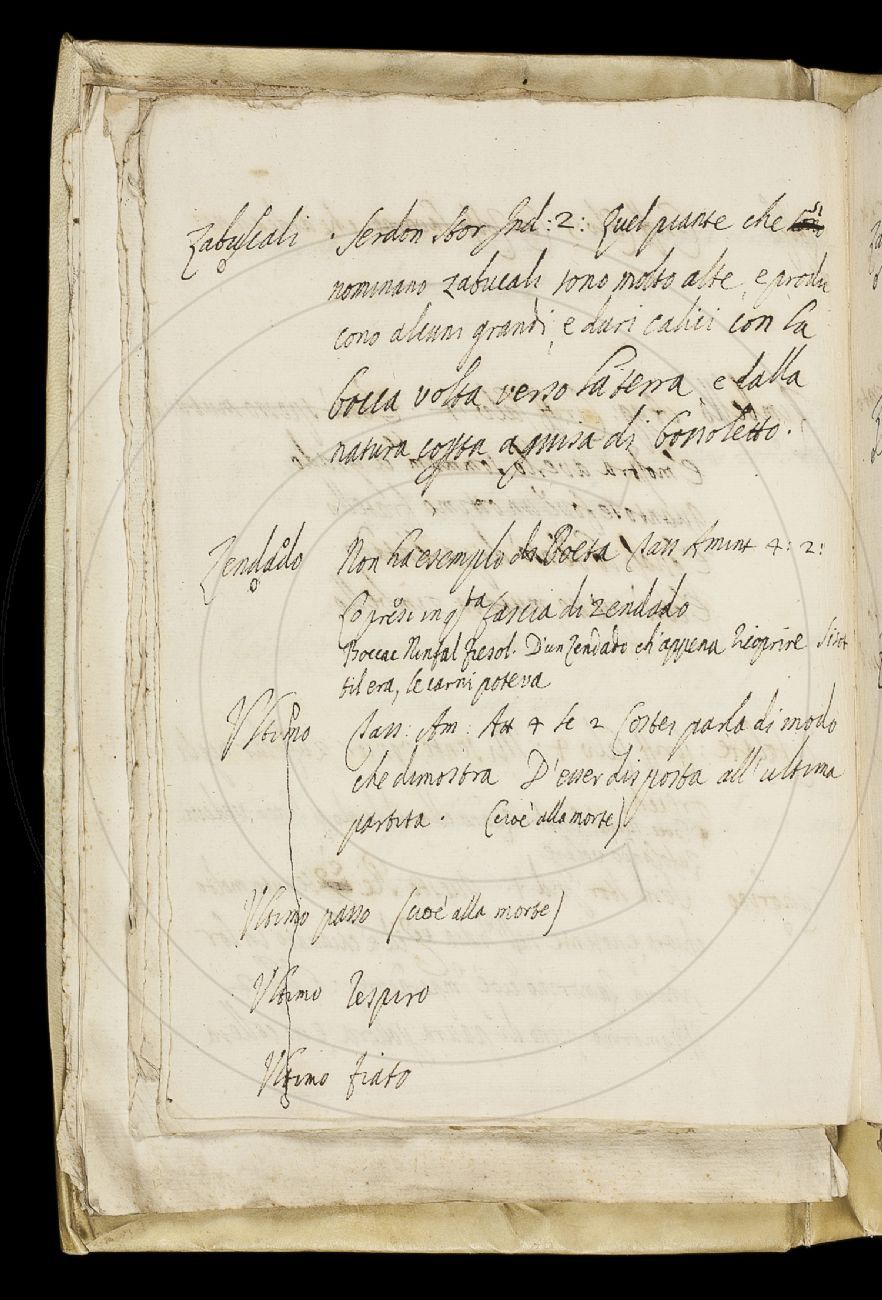 Zabucali . Serdon Stor Ind: 2: Quel piante che si
nominano zabucali sono molto alte, e produ
cono alcuni grandi, e duri calici con la
bocca volta verso la terra, e dalla
natura coperta a guisa di bossoletto.
Zendado Non ha esemplo di Poeta Tass Amint 4: 2:
fascia di zendado
Boccac Ninfal Fiesol. D'un Zendado ch'appena ricoprire Si sot
til era, le carni poteva
Ultimo Tass: Am: Att 4 Sc 2 Costei parla di modo
che dimostra D'esser disposta all'ultima
partita. (cioè alla morte)
Ultimo passo (cioè alla morte)
Ultimo respiro
Ultimo fiato